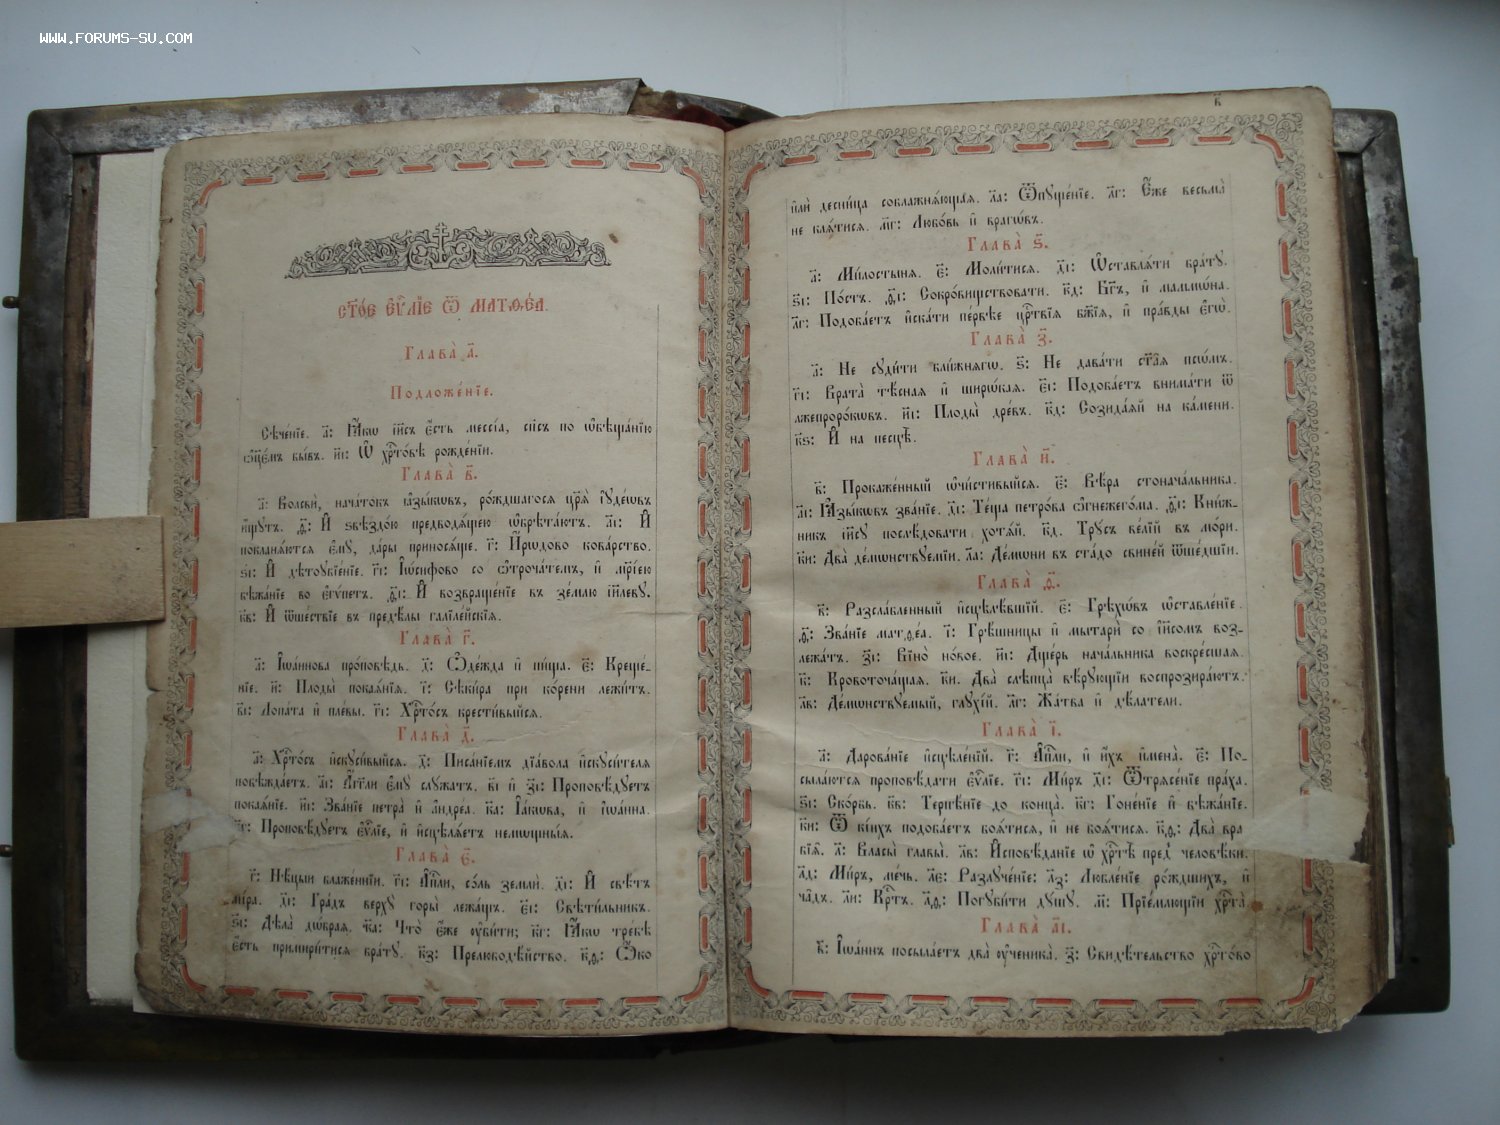 WWW.FORUMS-SU.COM
СТ҃о́е Є҆ѵⷢ҇лїе Ѿ МАТѲЕ́А.
Глава̀ а҃.
Подложе́нїе.
Сѣче́нїе. а҃: Ꙗ҆́кѡ і҆и҃съ є҆́сть мессі́а, сп҃съ по ѡ҆бѣща́нїю
ѻ҆тцє́мъ бы́въ. и҃і: Ѡ҆ хрⷭ҇то́вѣ рожде́нїи.
Глава̀ в҃.
а҃: Волсвѝ, нача́токъ ꙗ҆зы́кѡвъ, ро́ждшагося цр҃ѧ̀ і҆ꙋде́ѡвъ
и҆́щꙋтъ. ѳ҃: И҆ ѕвѣздо́ю предводѧ́щею ѡ҆брѣта́ютъ. а҃і: И҆
покланѧ́ются є҆мꙋ̀, да́ры принося́ще. г҃: И҆́рѡдово кова́рство.
ѕ҃і: И҆ дѣтоꙋбїе́нїе. г҃і: І҆ѡ́сифово со ѻ҆троча́темъ, и҆ мⷬ҇і́ею
бѣжа́нїе во є҆гѵ́петъ. ѳ҃і: И҆ возвраще́нїе въ зе́млю і҆и҃левꙋ.
к҃в: И҆ ѿше́ствїе въ предѣ́лы галїле́йскїѧ.
Глава̀ г҃.
а҃: І҆ѡа́ннова про́повѣдь. д҃: Ѻ҆де́жда и҆ пи́ща. є҃: Креще́-
нїе. и҃: Плоды̀ покаѧ́нїѧ. і҃: Сѣки́ра при ко́рени лежи́тъ.
в҃і: Лопа́та и҆ пле́вы. г҃і: Хрⷭ҇то́съ крести́выйся.
Глава̀ д҃.
а҃: Хрⷭ҇то́съ и҆скꙋси́выйся. д҃: Писа́нїемъ дїа́вола и҆скꙋси́теля
побѣжда́етъ. а҃і: А҆́гг҃ли є҆мꙋ̀ слꙋ́жатъ. в҃і и҆ з҃і: Проповѣ́дꙋетъ
покаѧ́нїе. и҃і: Зва́нїе петра̀ и҆ а҆ндре́а. к҃а: І҆а́кѡва, и҆ і҆ѡа́нна.
к҃г: Проповѣ́дꙋетъ є҆ѵⷢ҇лїе, и҆ и҆сцѣлѧ́етъ немѡщны́ѧ.
Глава̀ є҃.
г҃: Нѣ́цыи блаже́ннїи. г҃і: А҆пⷭ҇ли, со́ль землѝ. д҃і: И҆ свѣ́тъ
мі́ра. д҃і: Гра́дъ верхꙋ̀ горы̀ лежа́щъ. є҃і: Свѣти́льникъ.
ѕ҃і: Дѣ́ла дѡ́брая. к҃а: Что̀ є҆́же ᲂу҆би́ти; к҃г: Ꙗ҆́кѡ тре́бѣ
є҆́сть примири́тися бра́тꙋ. к҃з: Прелюбодѣ́йство. к҃ѳ: Ѻ҆́ко
в҃
и҆лѝ десни́ца соблажнѧ́ющаѧ. л҃а: Ѿпꙋще́нїе. л҃г: Є҆́же весьма̀
не клѧ́тися. м҃г: Любо́вь и҆ врагѡ́въ.
Глава̀ ѕ҃.
а҃: Ми́лостынѧ. є҃: Моли́тися. д҃і: Ѡ҆ставлѧ́ти бра́тꙋ.
ѕ҃і: По́стъ. ѳ҃і: Сокро́виществовати. к҃д: Бг҃ъ, и҆ мамѡ́на.
л҃г: Подоба́етъ и҆ска́ти пе́рвѣе црⷭ҇твїѧ бж҃їѧ, и҆ пра́вды є҆гѡ̀.
Глава̀ з҃.
а҃: Не сꙋди́ти бли́жнягѡ. ѕ҃: Не дава́ти ст҃а́ѧ псѡ́мъ.
г҃і: Врата̀ тѣ́сная и҆ широ́кая. є҃і: Подоба́етъ внима́ти ѿ
лжепроро́кѡвъ. и҃і: Плоды̀ дре́въ. к҃д: Созида́ѧй на ка́мени.
к҃ѕ: И҆ на песцѣ̀.
Глава̀ и҃.
в҃: Прокаже́нный ѡ҆чи́стивыйся. є҃: Вѣ́ра стонача́льника.
а҃і: Ꙗ҆зы́кѡвъ зва́нїе. д҃і: Те́ща петро́ва ѻ҆гнежего́ма. ѳ҃і: Кни́ж-
никъ і҆и҃сꙋ послѣ́довати хотѧ́й. к҃д. Трꙋ́съ ве́лїй въ мо́ри.
к҃и: Два̀ де́мѡнствꙋемїи. л҃а: Де́мѡни въ ста́до свине́й ѿше́дшїи.
Глава̀ ѳ҃.
в҃: Разсла́бленный и҆сцѣлѣ́вшїй. є҃: Грѣхѡ́въ ѡ҆ставле́нїе.
ѳ҃: Зва́нїе матѳе́а. і҃: Грѣ́шницы и҆ мытарѝ со і҆и҃сомъ воз-
лежа́тъ. з҃і: Вїно̀ но́вое. и҃і: Дще́рь нача́льника воскре́сшая.
к҃: Кровоточа́щая. к҃и. Два̀ слѣпца̀ вѣ́рꙋющїи воспрозира́ютъ.
л҃в: Де́мѡнствꙋемый, глꙋхі́й. л҃г: Жа́тва и҆ дѣ́латели.
Глава̀ і҃.
а҃: Дарова́нїе и҆сцѣле́нїй. г҃: А҆пⷭ҇ли, и҆ и҆́хъ и҆мена̀. є҃: По-
сыла́ются проповѣ́дати є҆ѵⷢ҇лїе. г҃і: Ми́ръ д҃і: Ѿтрѧсе́нїе пра́ха.
ѕ҃і: Ско́рбь. к҃в: Терпѣ́нїе до конца̀. к҃г: Гоне́нїе и҆ бѣжа́нїе.
к҃и: Ѿ ки́ихъ подоба́етъ боѧ́тися, и҆ не боѧ́тися. к҃ѳ: Два̀ вра
бїѧ̑. л҃: Власы̀ главы̀. л҃в: И҆сповѣ́данїе ѡ҆ хрⷭ҇тѣ̀ пред̾ человѣ́ки.
л҃д: Ми́ръ, ме́чь. л҃є: Разлꙋче́нїе: л҃з: Любле́нїе ро́ждшихъ, и҆
ча̑дъ. л҃и: Крⷭ҇тъ. л҃ѳ: Погꙋби́ти дꙋ́шꙋ. м҃: Прїе́млющїи хрⷭ҇та̀
Глава̀ а҃і.
в҃: І҆ѡа́ннъ посыла́етъ два̀ ᲂу҆ченика̀. з҃: Свидѣ́тельство хрⷭ҇то́во